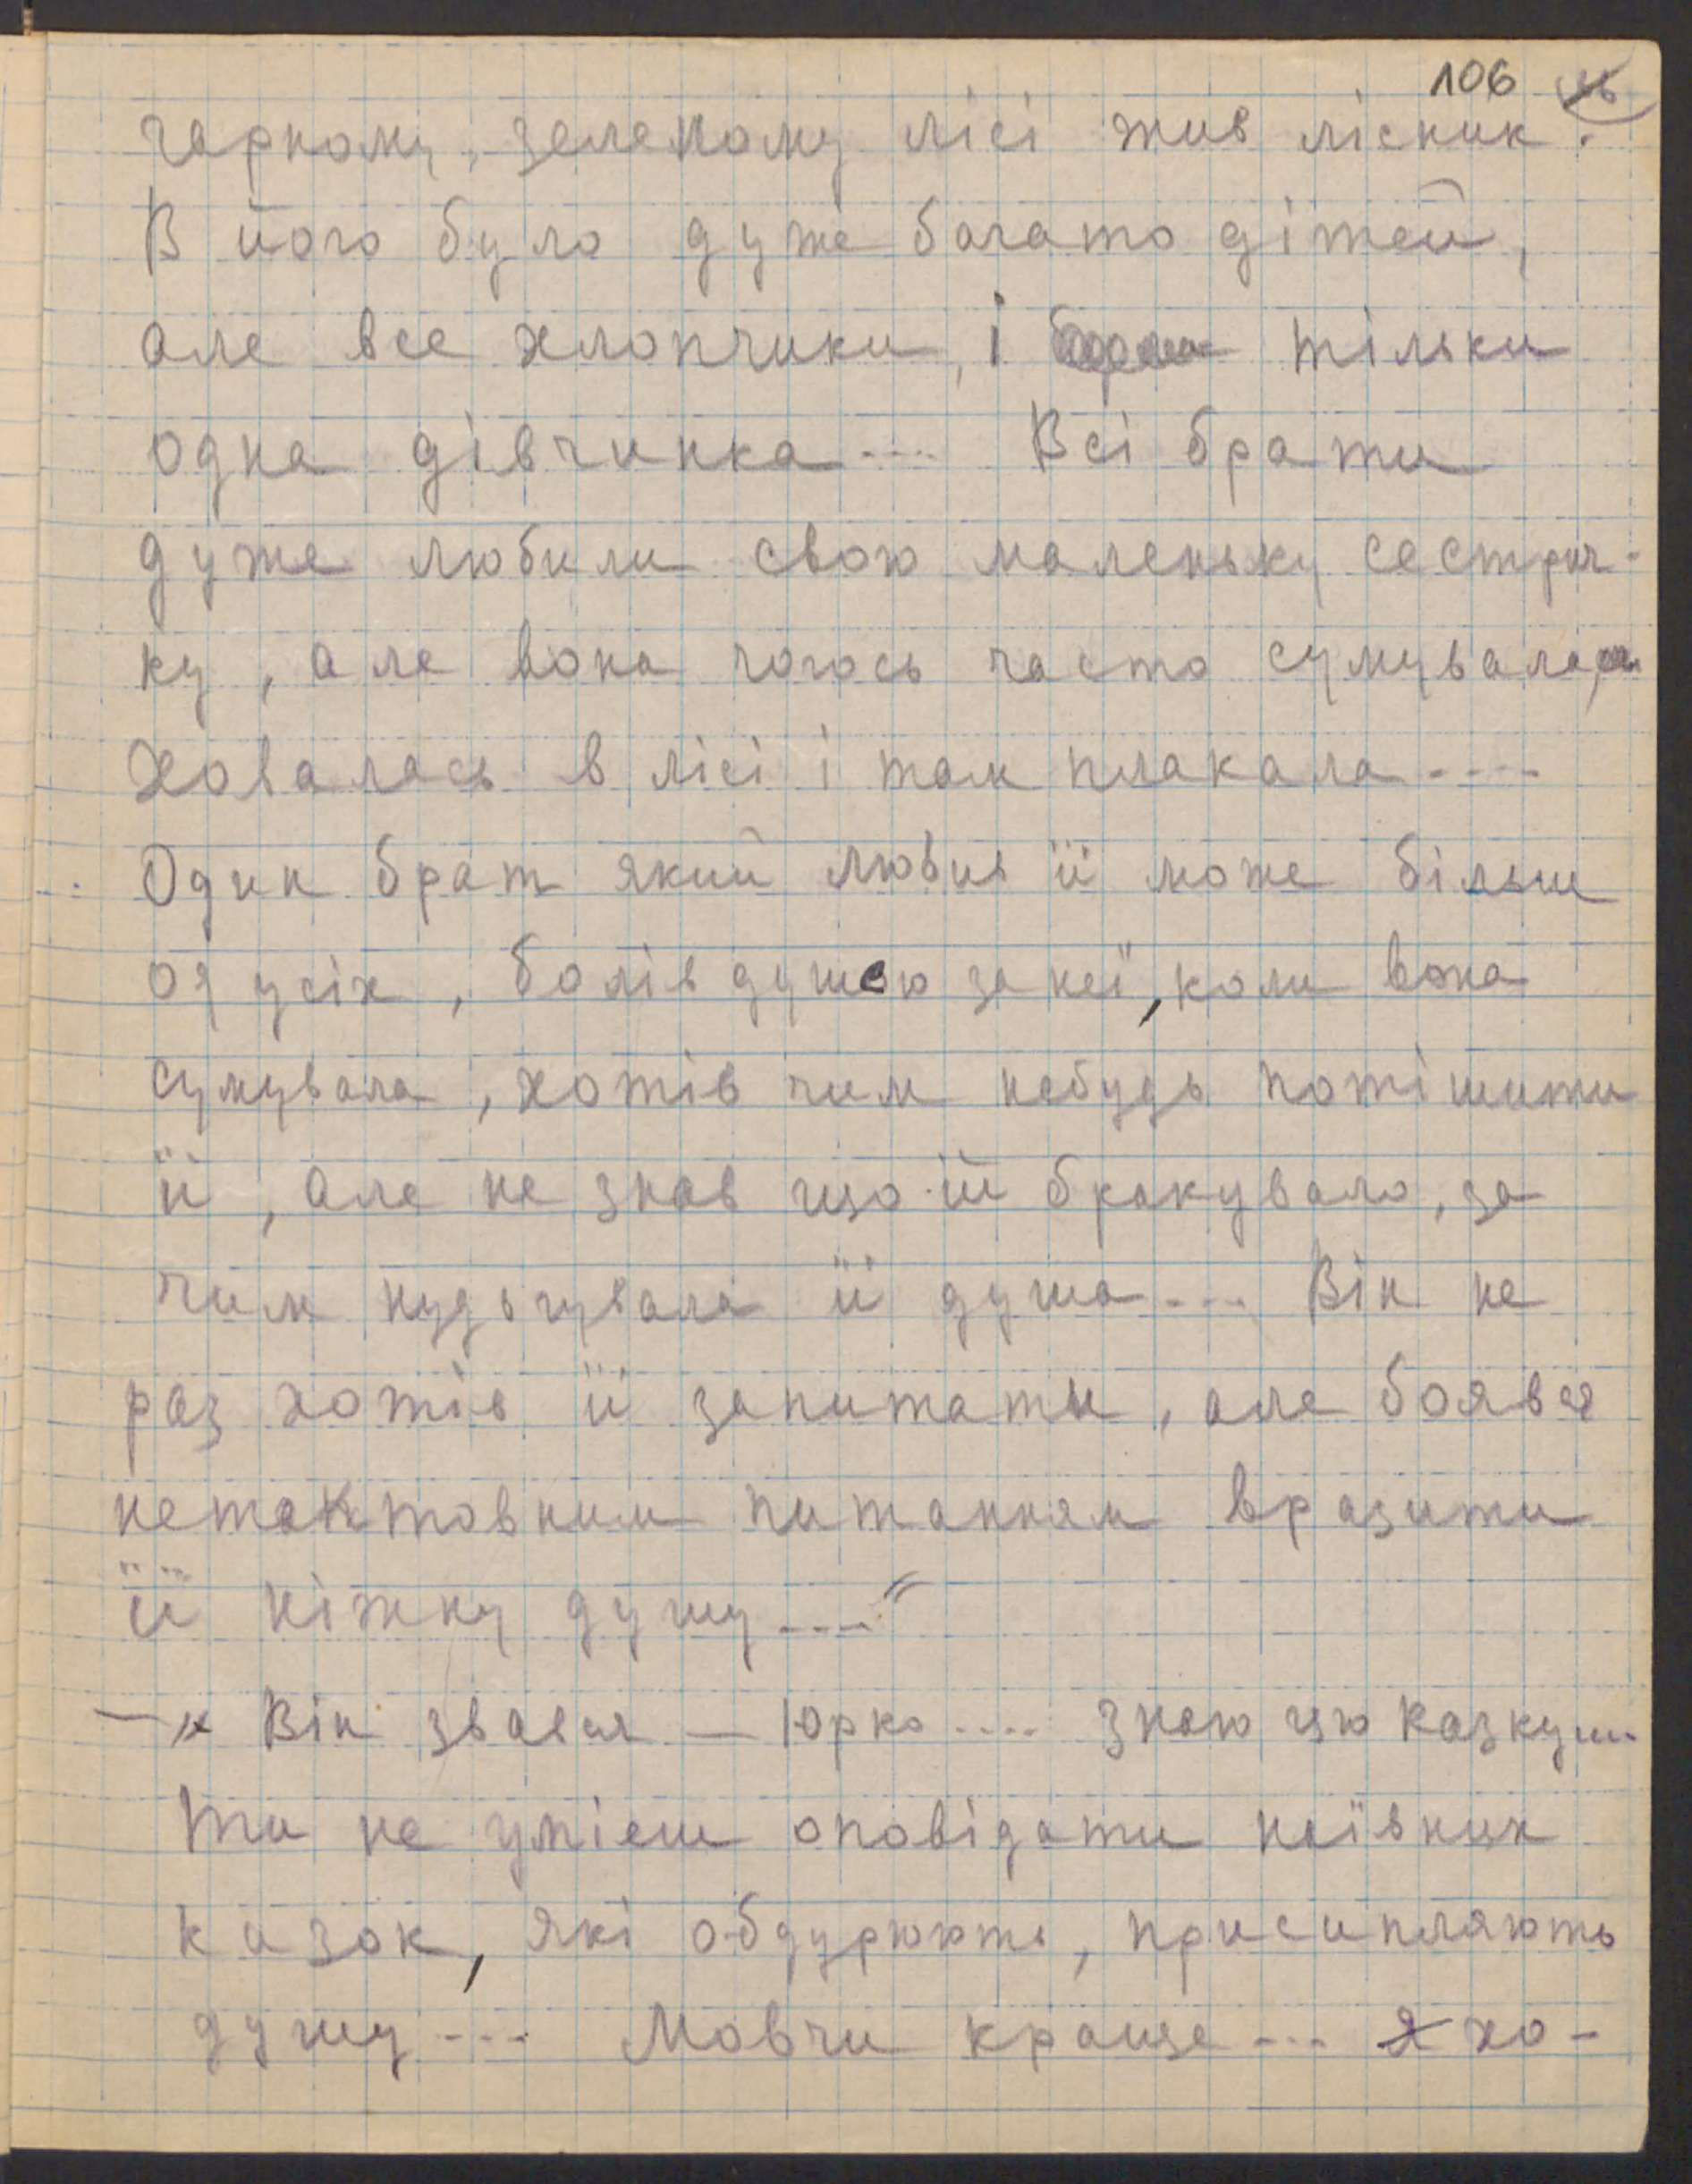 106
гарному, зеленому лісі жив лісник.
В його було дуже багато дітей,
але все хлопчики, і тільки
одна дівчинка.... Всі брати
дуже любили свою маленьку сестрич-
ку, але вона чогось часто сумувала,
ховалась в лісі і там плакала....
Один брат який любив її може більш
од усіх, болів душею за неї, коли вона
сумувала, хотів чим небудь потішити
її, але не знав що їй бракувало, за
чим нудьгувала її душа.... Він не
раз хотів її запитати, але боявся
нетактовним питанням вразити
її ніжну душу...."
— Він звався — Юрко.... знаю цю казку...
Ти не умієш оповідати наївних
казок, які обдурюють, присипляють
душу.... Мовчи краще... Я хо-